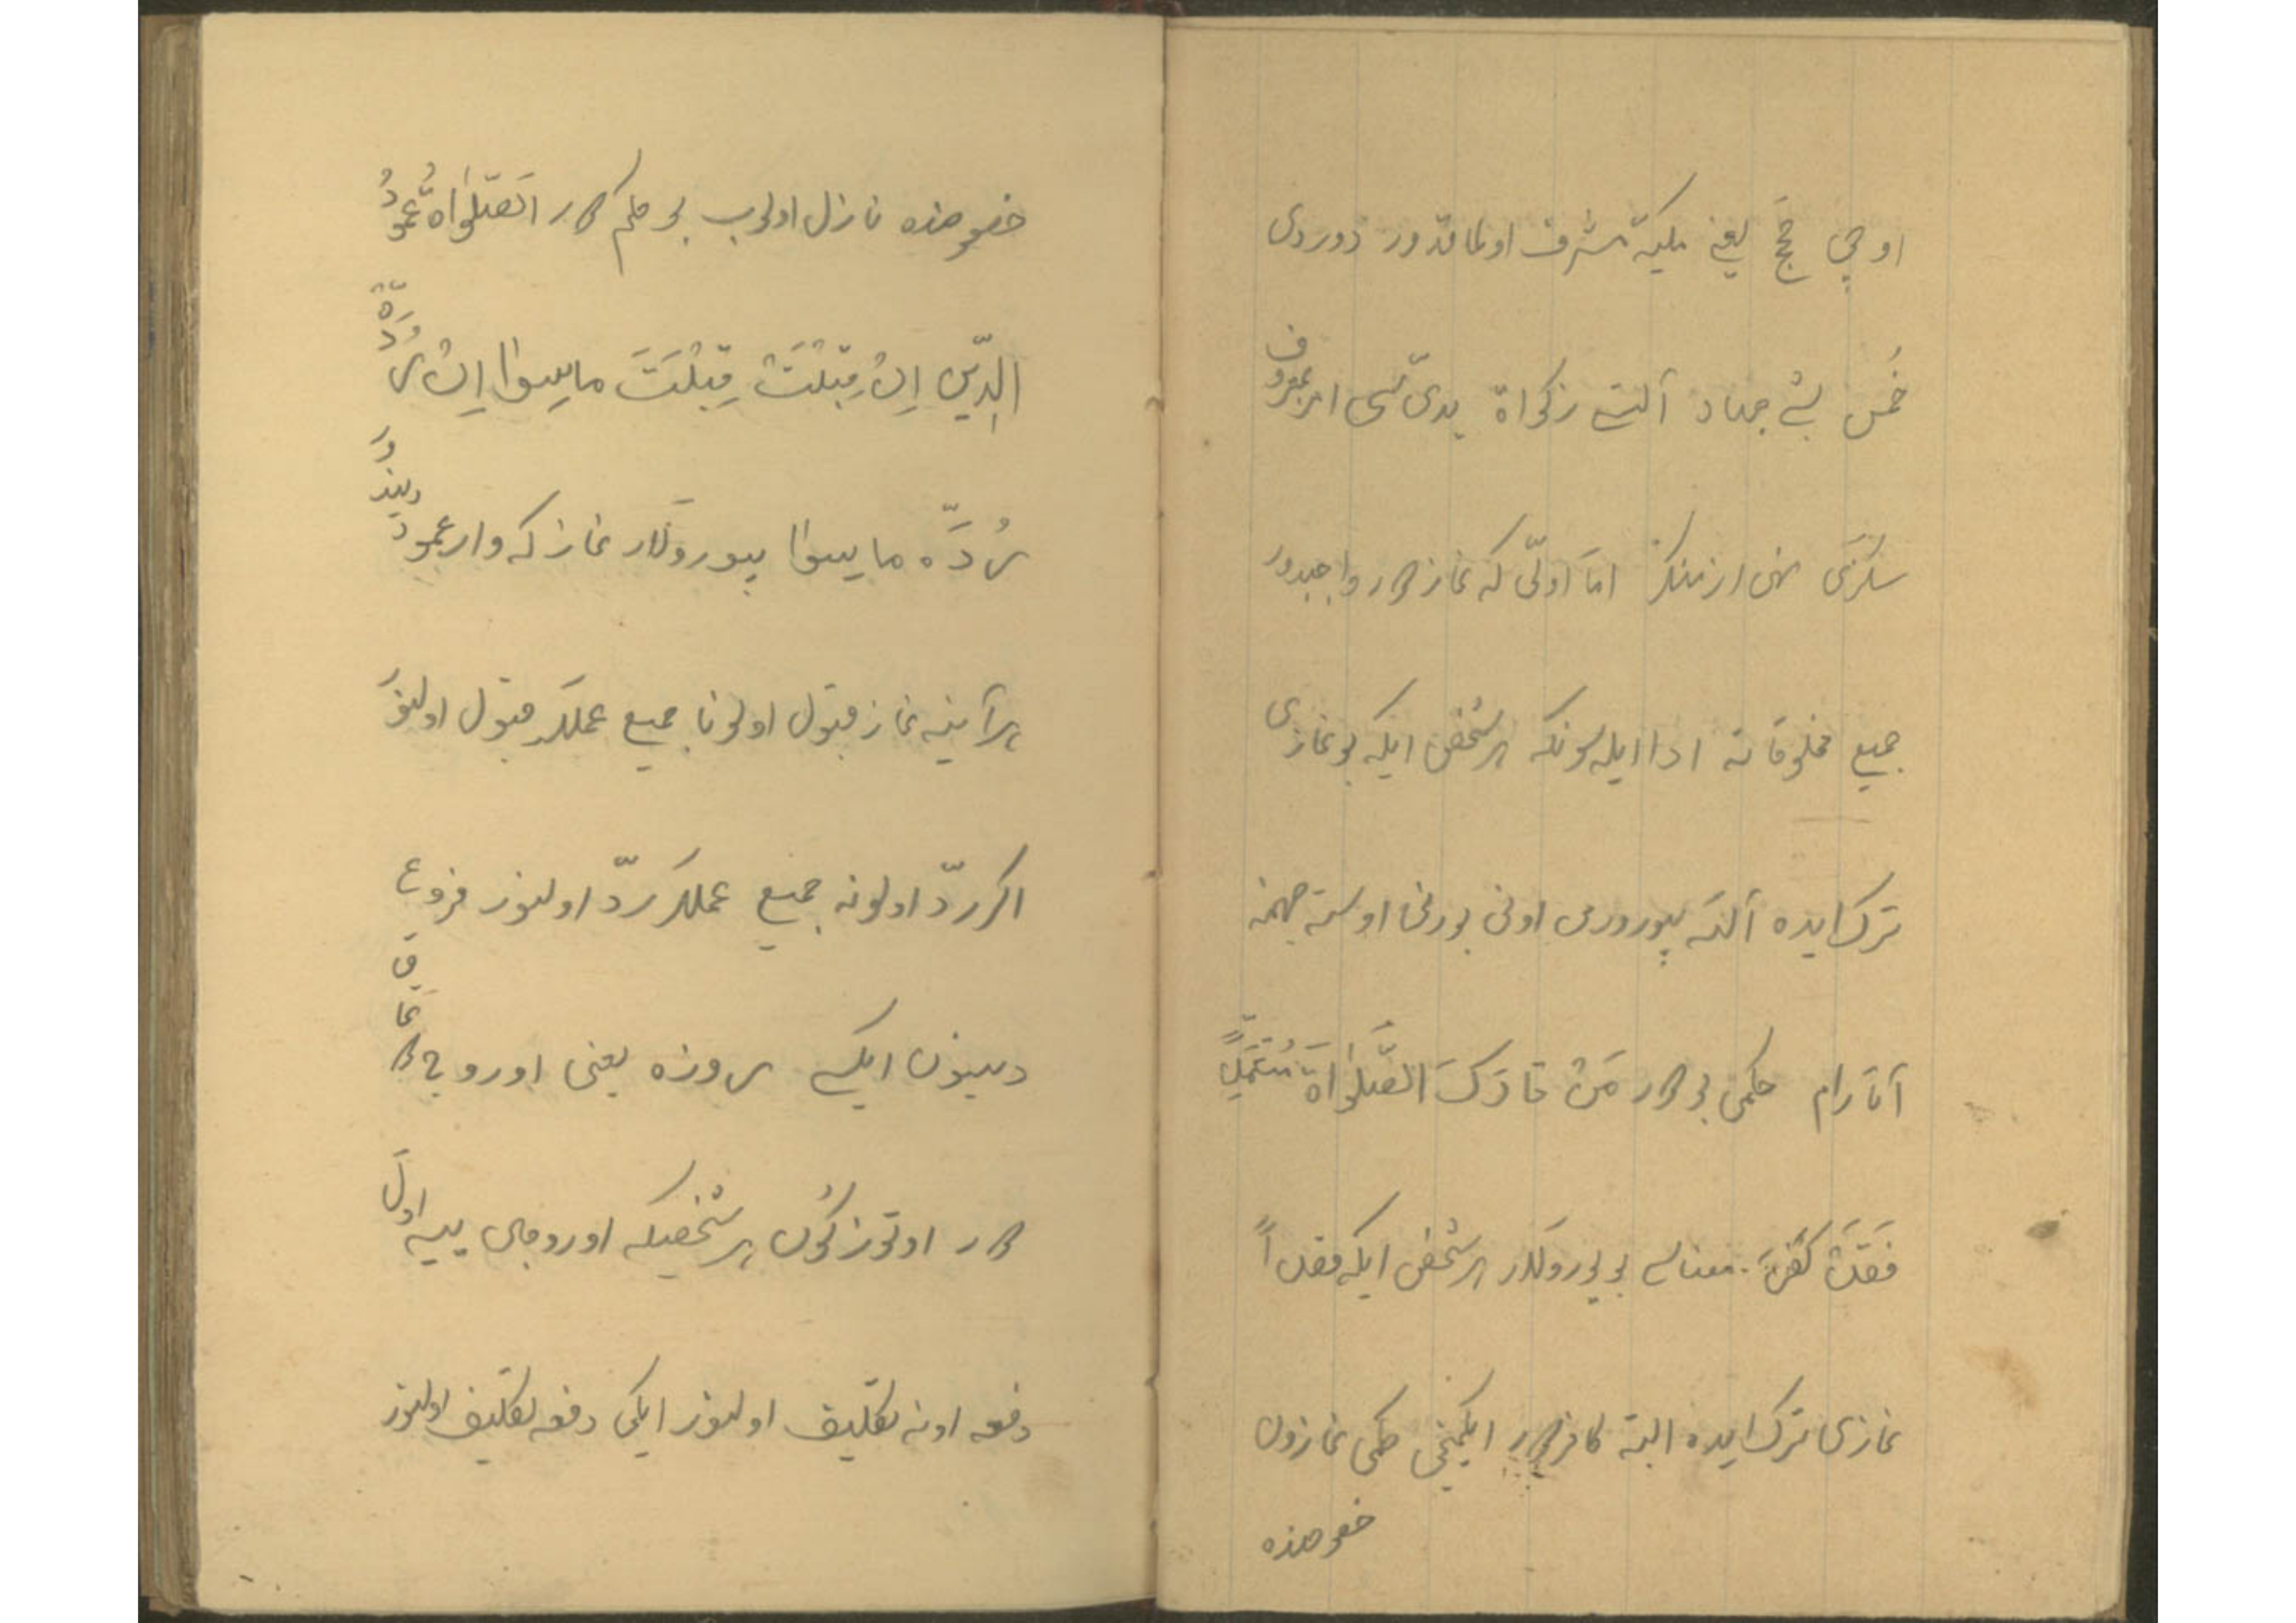 اوچی حَجّ یعنی مکیه مشرف اولماقدور دوردی
خُمس بش جهاد آلتی زکواة یدّی‌سی امر بمعروف
سکزی نهی از منکر امّا اوّلی که نماز دور واجبدور
جمیع مخلوقاته ادا ایله‌سونکه هر شخص ایکه بو نمازی
ترک ایده آللّه بیورور من اونی بورنی اوسته جهنمه
آتارام حکمی بودور مَنْ تارَکَ الصَّلٰواةَ مُتَعَمِّداً
فَقَدْ کَفَرَ. معناسی بو بیورولار هر شخص ایکه قصداً
نمازی ترک ایده البته کافردور ایکیمجی حکمی نمازون
خصوصنده
خصوصنده نازل اولوب بو حکم دور الصّلٰواةُ عمودُ
الدّین اِنْ قبِلَتْ قبِلَتَ ماسِوا اِنْ رُدَّة
رُدَّه ماسوا بیورولار نماز که وار عمود دیندور
هرآینه نماز قبول اولونا جمیع عمللر قبول اولنور
اکر ردّ اولونه جمیع عمللر ردّ اولنور فروع
دینون ایکسی روزه یعنی اوروج دوتماق
دور اوتوز کون هر شخصیکه اوروجی ییه اوّل
دفعه اونه تکلیف اولنور ایکی دفعه تکلیف اولنور